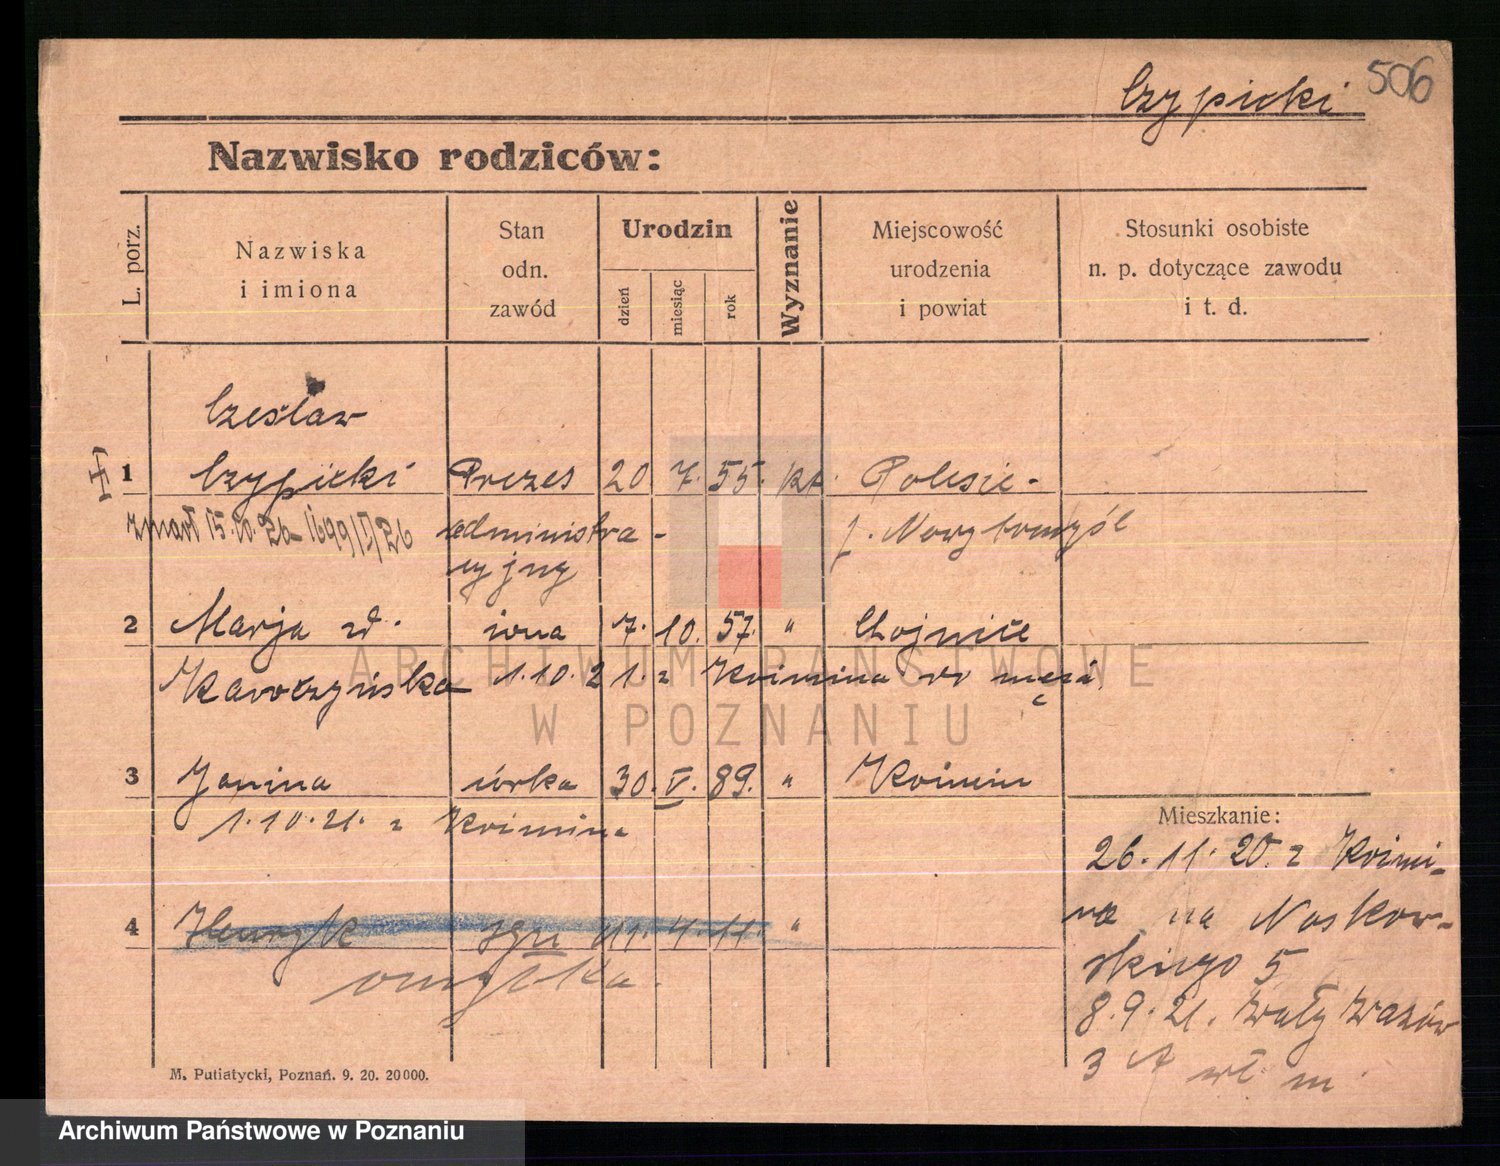 506
Czypicki
Nazwisko rodziców:
L. porz.
Nazwiska
i imiona
Stan
odn.
zawód
Urodzin
dzień
miesiąc
rok
Wyznanie
Miejscowość
urodzenia
i powiat
Stosunki osobiste
n. p. dotyczące zawodu
i t. d.
Czesław
1 Czypicki Prezes 20 7. 55. kt. Polesie -
zmarł 15. administra- p. Nowytomyśl
cyjny
2 Marja zd. żona 7. 10. 57. " Chojnice
1.10.21. z Koźmina do męża
3 Janina córka 30. V. 89. " Koźmin
1.10.21. z Koźmina
Mieszkanie:
26.11.20. z Koźmi-
na na Noskow-
skiego 5
4 Henryk syn 11. 4. 11. "
omyłka.
8.9.21. Wały Wazów
3 A wł m
M. Putiatycki, Poznań. 9. 20. 20000.
ARCHIWUM PAŃSTWOWE
W POZNANIU
Archiwum Państwowe w Poznaniu